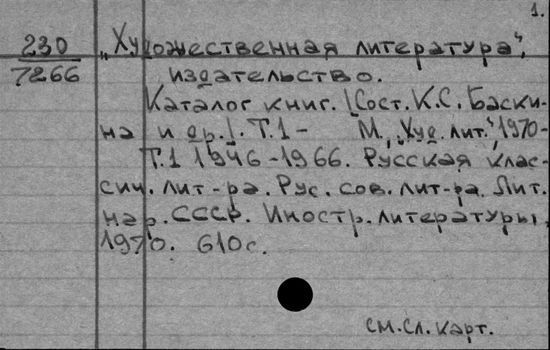 1.
230
7266
„Художественная литература“,
издательство.
Каталог книг. [Сост. К.С. Баски-
на и др.]. Т.1 - М., „Худ. лит.“, 1970-
Т.1 1946-1966. Русская клас-
сич. лит-ра. Рус. сов. лит-ра. Лит.
нар. СССР. Иностр. литературы,
1970. 610с.
см. сл. карт.